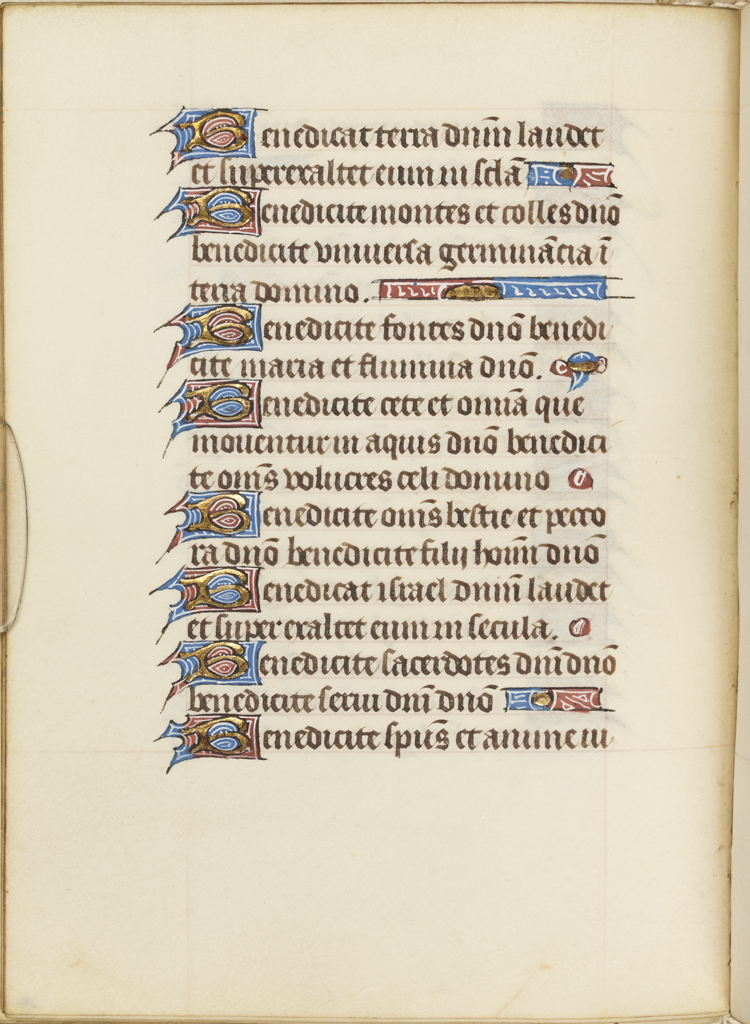 Benedicat terra dnm̄ laudet
et superexaltet eum in sclā
Benedicite montes et colles dnō
benedicite vniuersa germinācia ī
terra domino.
Benedicite fontes dnō benedi
cite maria et flumina dnō.
Benedicite cete et omīa que
mouentur in aquis dnō benedici
te om̄s volucres celi domino
Benedicite om̄s bestie et peco
ra dnō benedicite filij hoīm dnō
Benedicat israel dnm̄ laudet
et superexaltet eum in secula.
Benedicite sacerdotes dnī dnō
benedicite serui dnī dnō
Benedicite spūs et anime iu